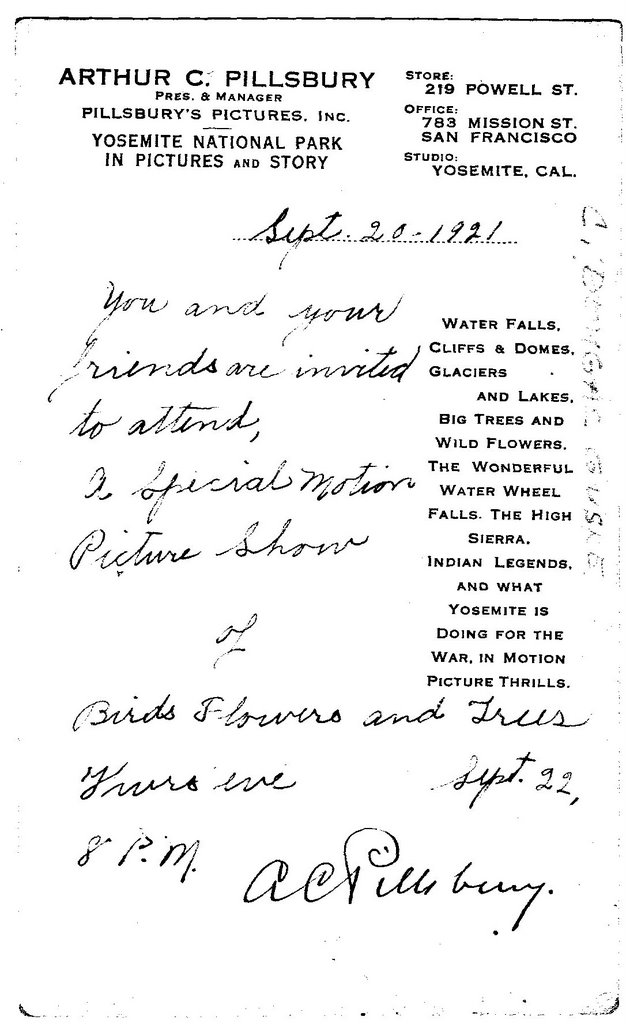 ARTHUR C. PILLSBURY
PRES. & MANAGER
PILLSBURY'S PICTURES, INC.
YOSEMITE NATIONAL PARK
IN PICTURES AND STORY
STORE:
219 POWELL ST.
OFFICE:
783 MISSION ST.
SAN FRANCISCO
STUDIO:
YOSEMITE, CAL.
Sept. 20 - 1921
You and your
friends are invited
to attend,
A Special Motion
Picture Show
of
Birds Flowers and Trees
Thurs eve Sept. 22,
8 P.M.
A C Pillsbury.
WATER FALLS,
CLIFFS & DOMES,
GLACIERS
AND LAKES,
BIG TREES AND
WILD FLOWERS.
THE WONDERFUL
WATER WHEEL
FALLS. THE HIGH
SIERRA,
INDIAN LEGENDS,
AND WHAT
YOSEMITE IS
DOING FOR THE
WAR, IN MOTION
PICTURE THRILLS.